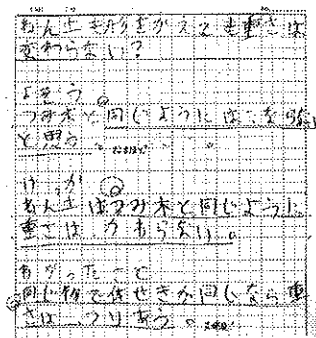 ねん土も形をかえても重さは
変わらない?
よそう。
つみ木と同じようにはならない
と思う。
けっか
ねん土はつみ木と同じように
重さはかわらない。
わかったこと
同じ物で体せきが同じなら重
さはつりあう。